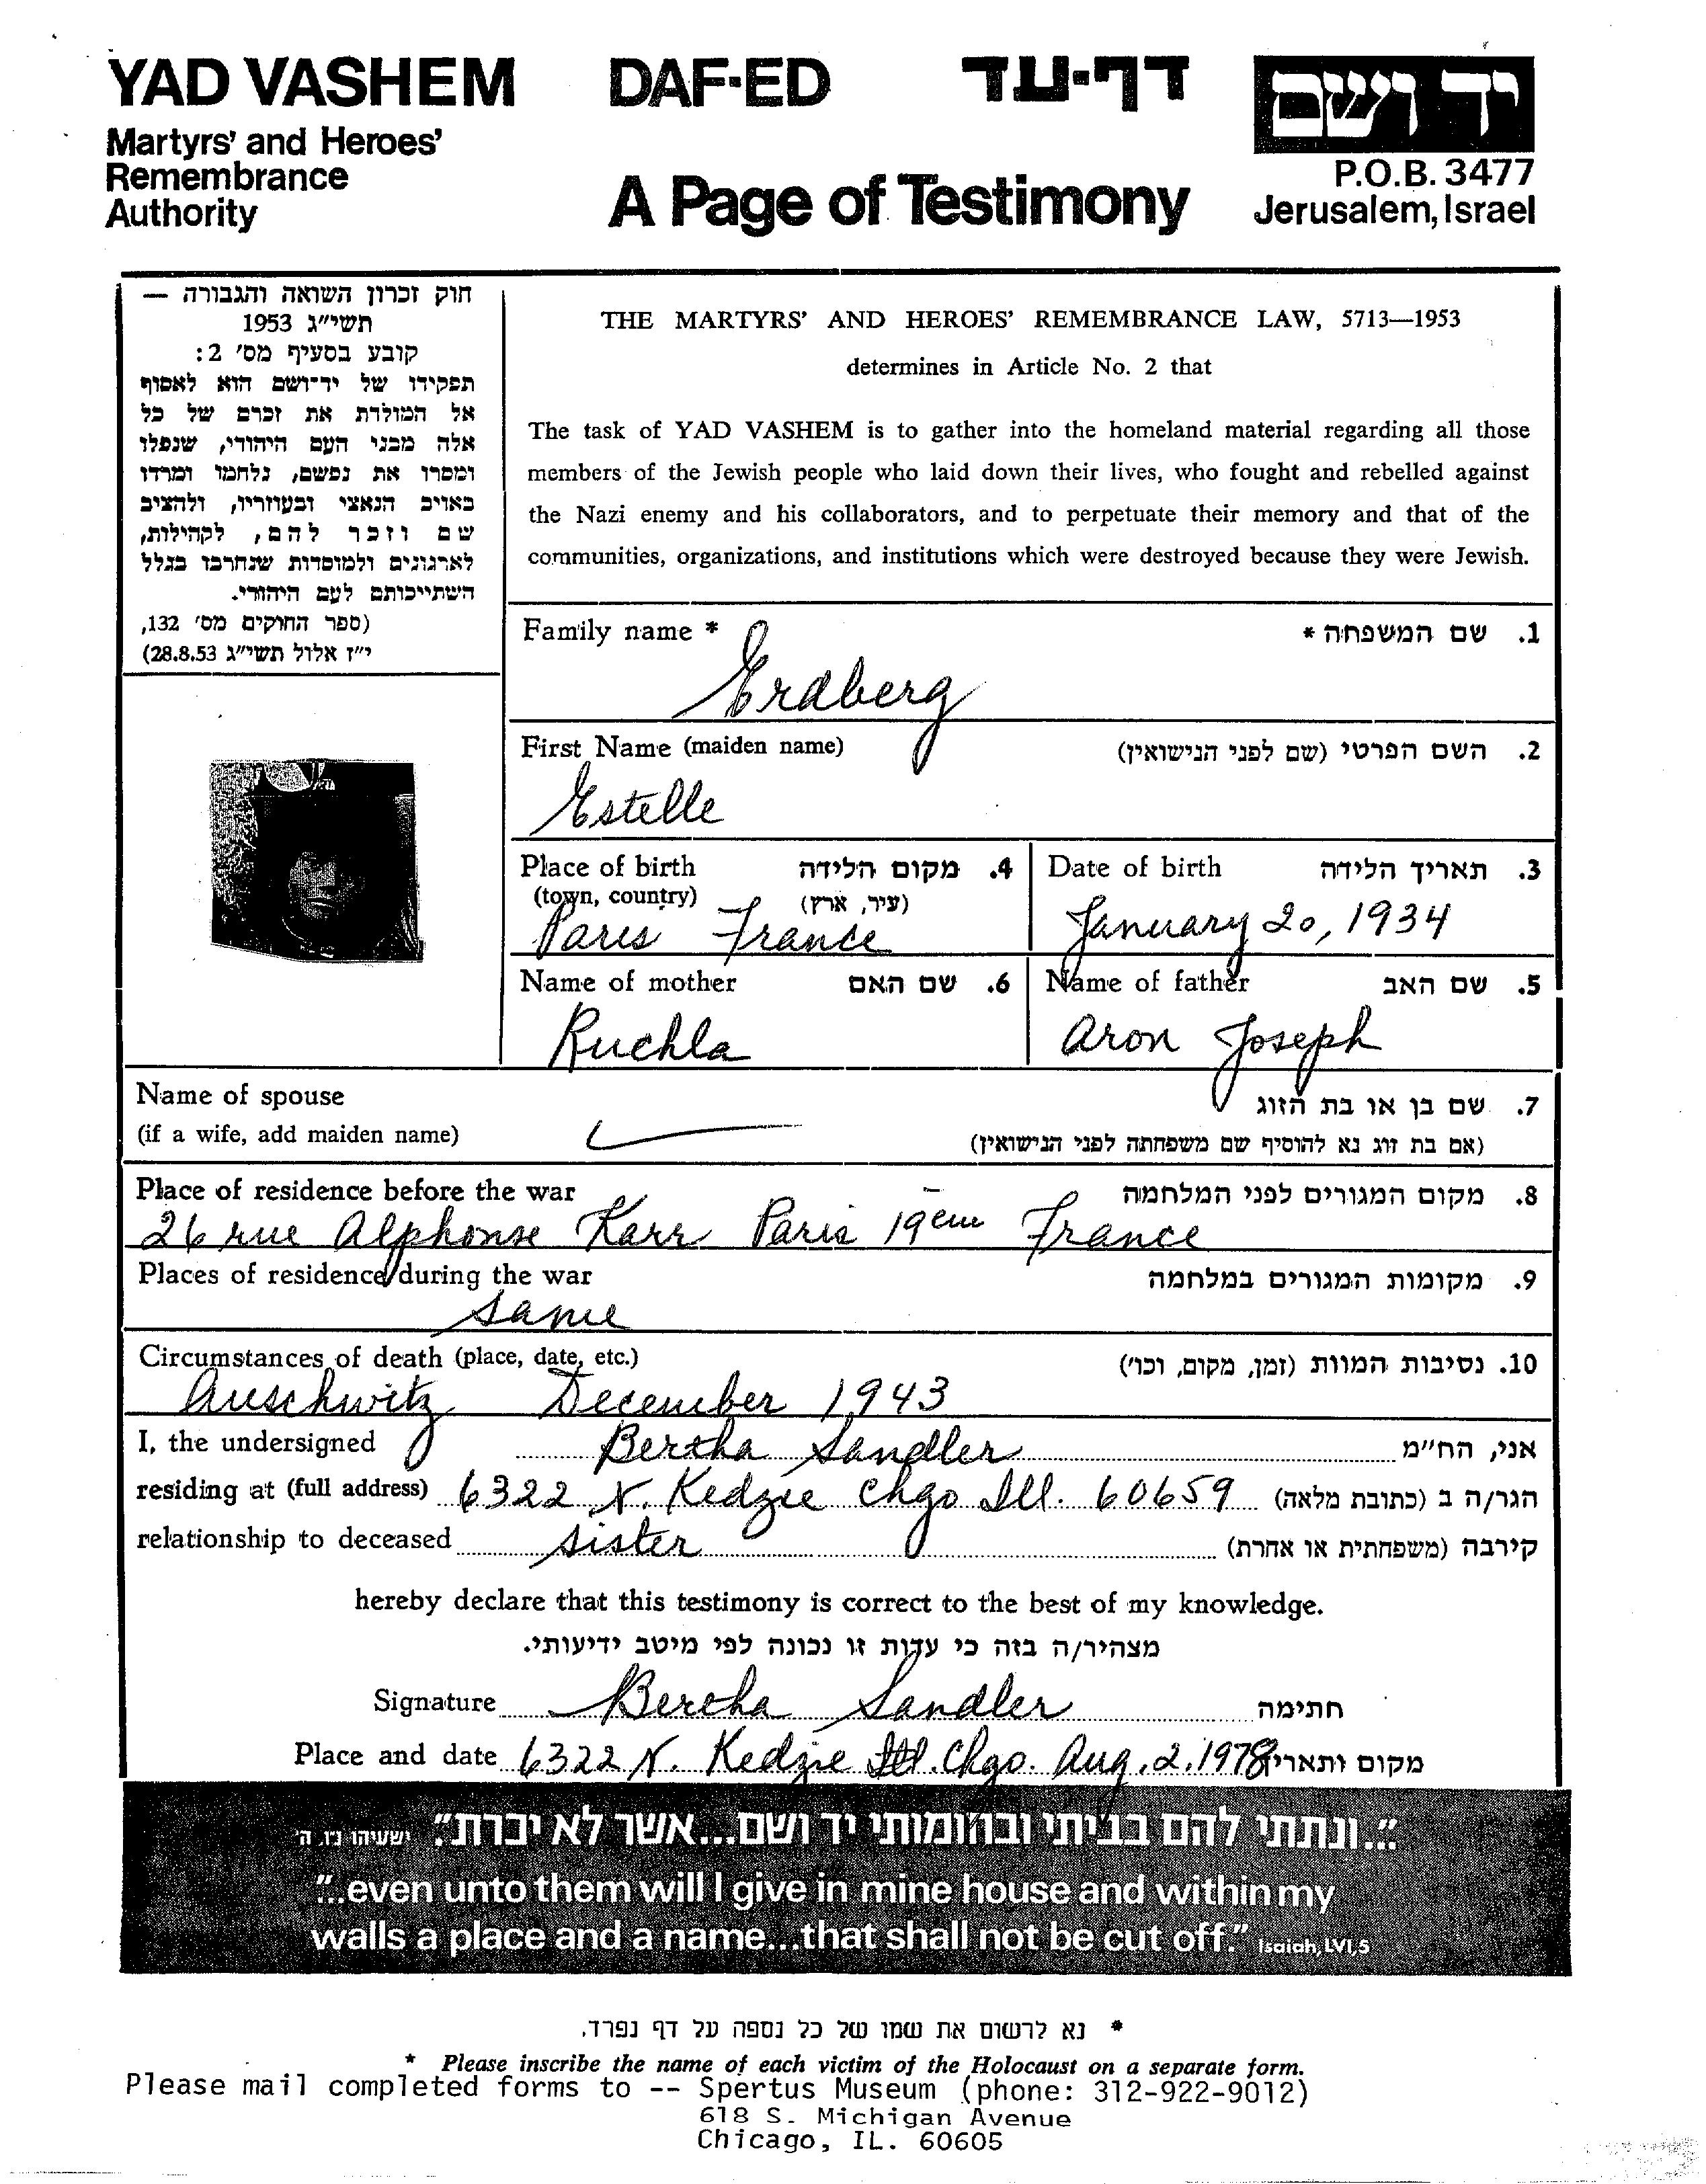 YAD VASHEM DAF-ED דף-עד יד ושם
Martyrs' and Heroes'
Remembrance
Authority
A Page of Testimony
P.O.B. 3477
Jerusalem, Israel
חוק זכרון השואה והגבורה —
תשי"ג 1953
קובע בסעיף מס' 2:
תפקידו של יד-ושם הוא לאסוף
אל המולדת את זכרם של כל
אלה מבני העם היהודי, שנפלו
ומסרו את נפשם, נלחמו ומרדו
באויב הנאצי ובעוזריו, ולהציב
שם וזכר להם, לקהילות,
לארגונים ולמוסדות שנחרבו בגלל
השתייכותם לעם היהודי.
(ספר החוקים מס' 132,
י"ז אלול תשי"ג 28.8.53)
THE MARTYRS' AND HEROES' REMEMBRANCE LAW, 5713—1953
determines in Article No. 2 that
The task of YAD VASHEM is to gather into the homeland material regarding all those
members of the Jewish people who laid down their lives, who fought and rebelled against
the Nazi enemy and his collaborators, and to perpetuate their memory and that of the
communities, organizations, and institutions which were destroyed because they were Jewish.
Family name * 1. שם המשפחה *
Erdberg
First Name (maiden name) 2. השם הפרטי (שם לפני הנישואין)
Estelle
Place of birth 4. מקום הלידה
(town, country) (עיר, ארץ)
Paris France
Date of birth 3. תאריך הלידה
January 20, 1934
Name of mother 6. שם האם
Ruchla
Name of father 5. שם האב
Aron Joseph
Name of spouse 7. שם בן או בת הזוג
(if a wife, add maiden name) (אם בת זוג נא להוסיף שם משפחתה לפני הנישואין)
Place of residence before the war 8. מקום המגורים לפני המלחמה
26 rue Alphonse Karr Paris 19eme France
Places of residence during the war 9. מקומות המגורים במלחמה
Same
Circumstances of death (place, date, etc.) 10. נסיבות המוות (זמן, מקום, וכו')
Auschwitz December 1943
I, the undersigned Bertha Sandler אני, הח"מ
residing at (full address) 6322 N. Kedzie Chgo Ill. 60659 הגר/ה ב (כתובת מלאה)
relationship to deceased sister קירבה (משפחתית או אחרת)
hereby declare that this testimony is correct to the best of my knowledge.
מצהיר/ה בזה כי עדות זו נכונה לפי מיטב ידיעותי.
Signature Bertha Sandler חתימה
Place and date 6322 N. Kedzie Ill. Chgo. Aug. 2, 1978 מקום ותאריך
"...ונתתי להם בביתי ובחומותי יד ושם...אשר לא יכרת". ישעיהו נו, ה'
"...even unto them will I give in mine house and within my
walls a place and a name...that shall not be cut off." Isaiah, LVI,5
* נא לרשום את שמו של כל נספה על דף נפרד.
* Please inscribe the name of each victim of the Holocaust on a separate form.
Please mail completed forms to -- Spertus Museum (phone: 312-922-9012)
618 S. Michigan Avenue
Chicago, IL. 60605